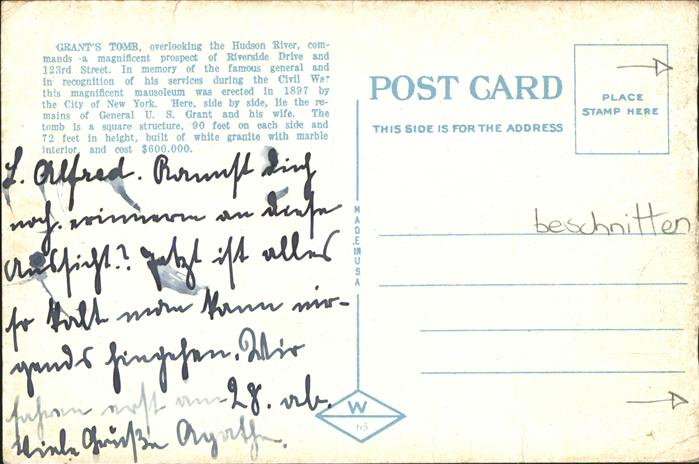 GRANT'S TOMB, overlooking the Hudson River, com-
mands a magnificent prospect of Riverside Drive and
123rd Street. In memory of the famous general and
in recognition of his services during the Civil War
this magnificent mausoleum was erected in 1897 by
the City of New York. Here, side by side, lie the re-
mains of General U. S. Grant and his wife. The
tomb is a square structure, 90 feet on each side and
72 feet in height, built of white granite with marble
interior, and cost $600.000.
L. Alfred. Kannst Dich
noch erinnern an diese
Aussicht? Jetzt ist alles
so kalt man kann nir-
gends hingehen. Wir
fahren erst am 28. ab.
Viele Grüße Agathe.
MADE IN USA
W
65
POST CARD
THIS SIDE IS FOR THE ADDRESS
PLACE
STAMP HERE
beschnitten